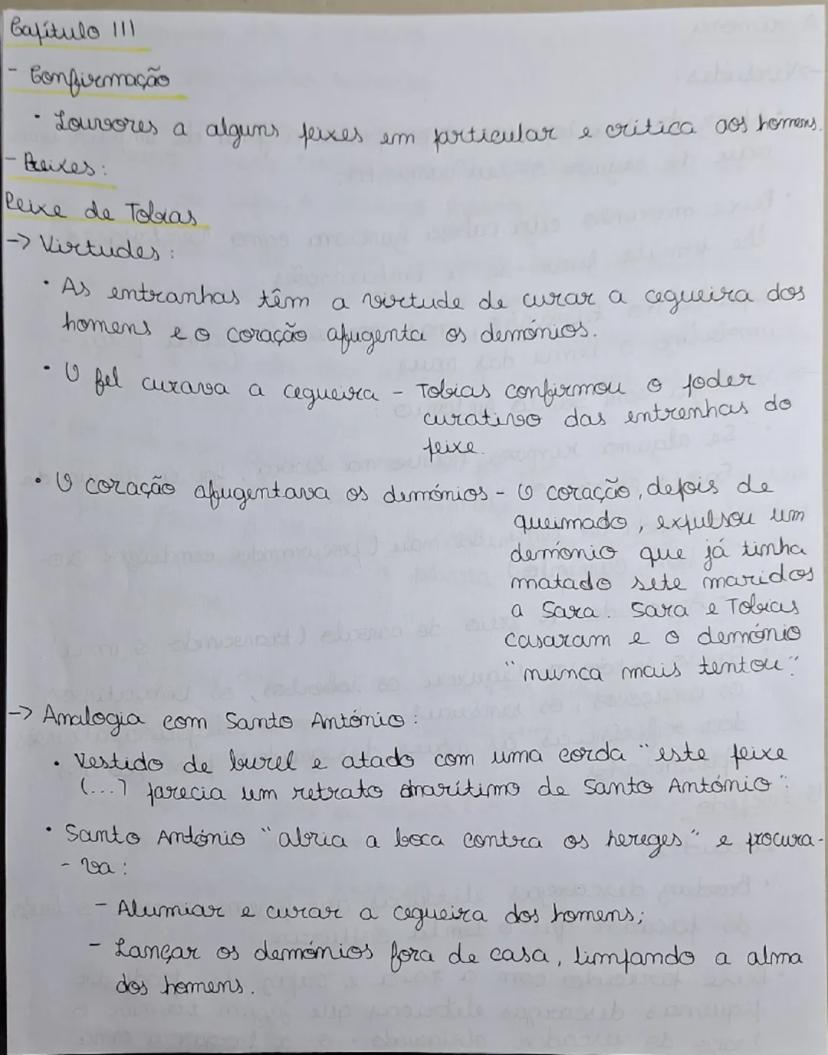 Capítulo III
- Confirmação
• Louvores a alguns peixes em particular e crítica aos homens.
- Peixes:
Peixe de Tobias
-> Virtudes:
• As entranhas têm a virtude de curar a cegueira dos
homens e o coração afugenta os demónios.
• O fel curava a cegueira - Tobias confirmou o poder
curativo das entrenhas do
peixe.
• O coração afugentava os demónios - O coração, depois de
queimado, expulsou um
demonio que já tinha
matado sete maridos
a Sara. Sara e Tobias
casaram e o demónio
"nunca mais tentou".
-> Analogia com Santo António:
• Vestido de burel e atado com uma corda "este peixe
(...) parecia um retrato marítimo de Santo António".
• Santo António "abria a boca contra os hereges" e procura-
- va:
- Alumiar e curar a cegueira dos homens;
- Lançar os demónios fora de casa, limpando a alma
dos homens.